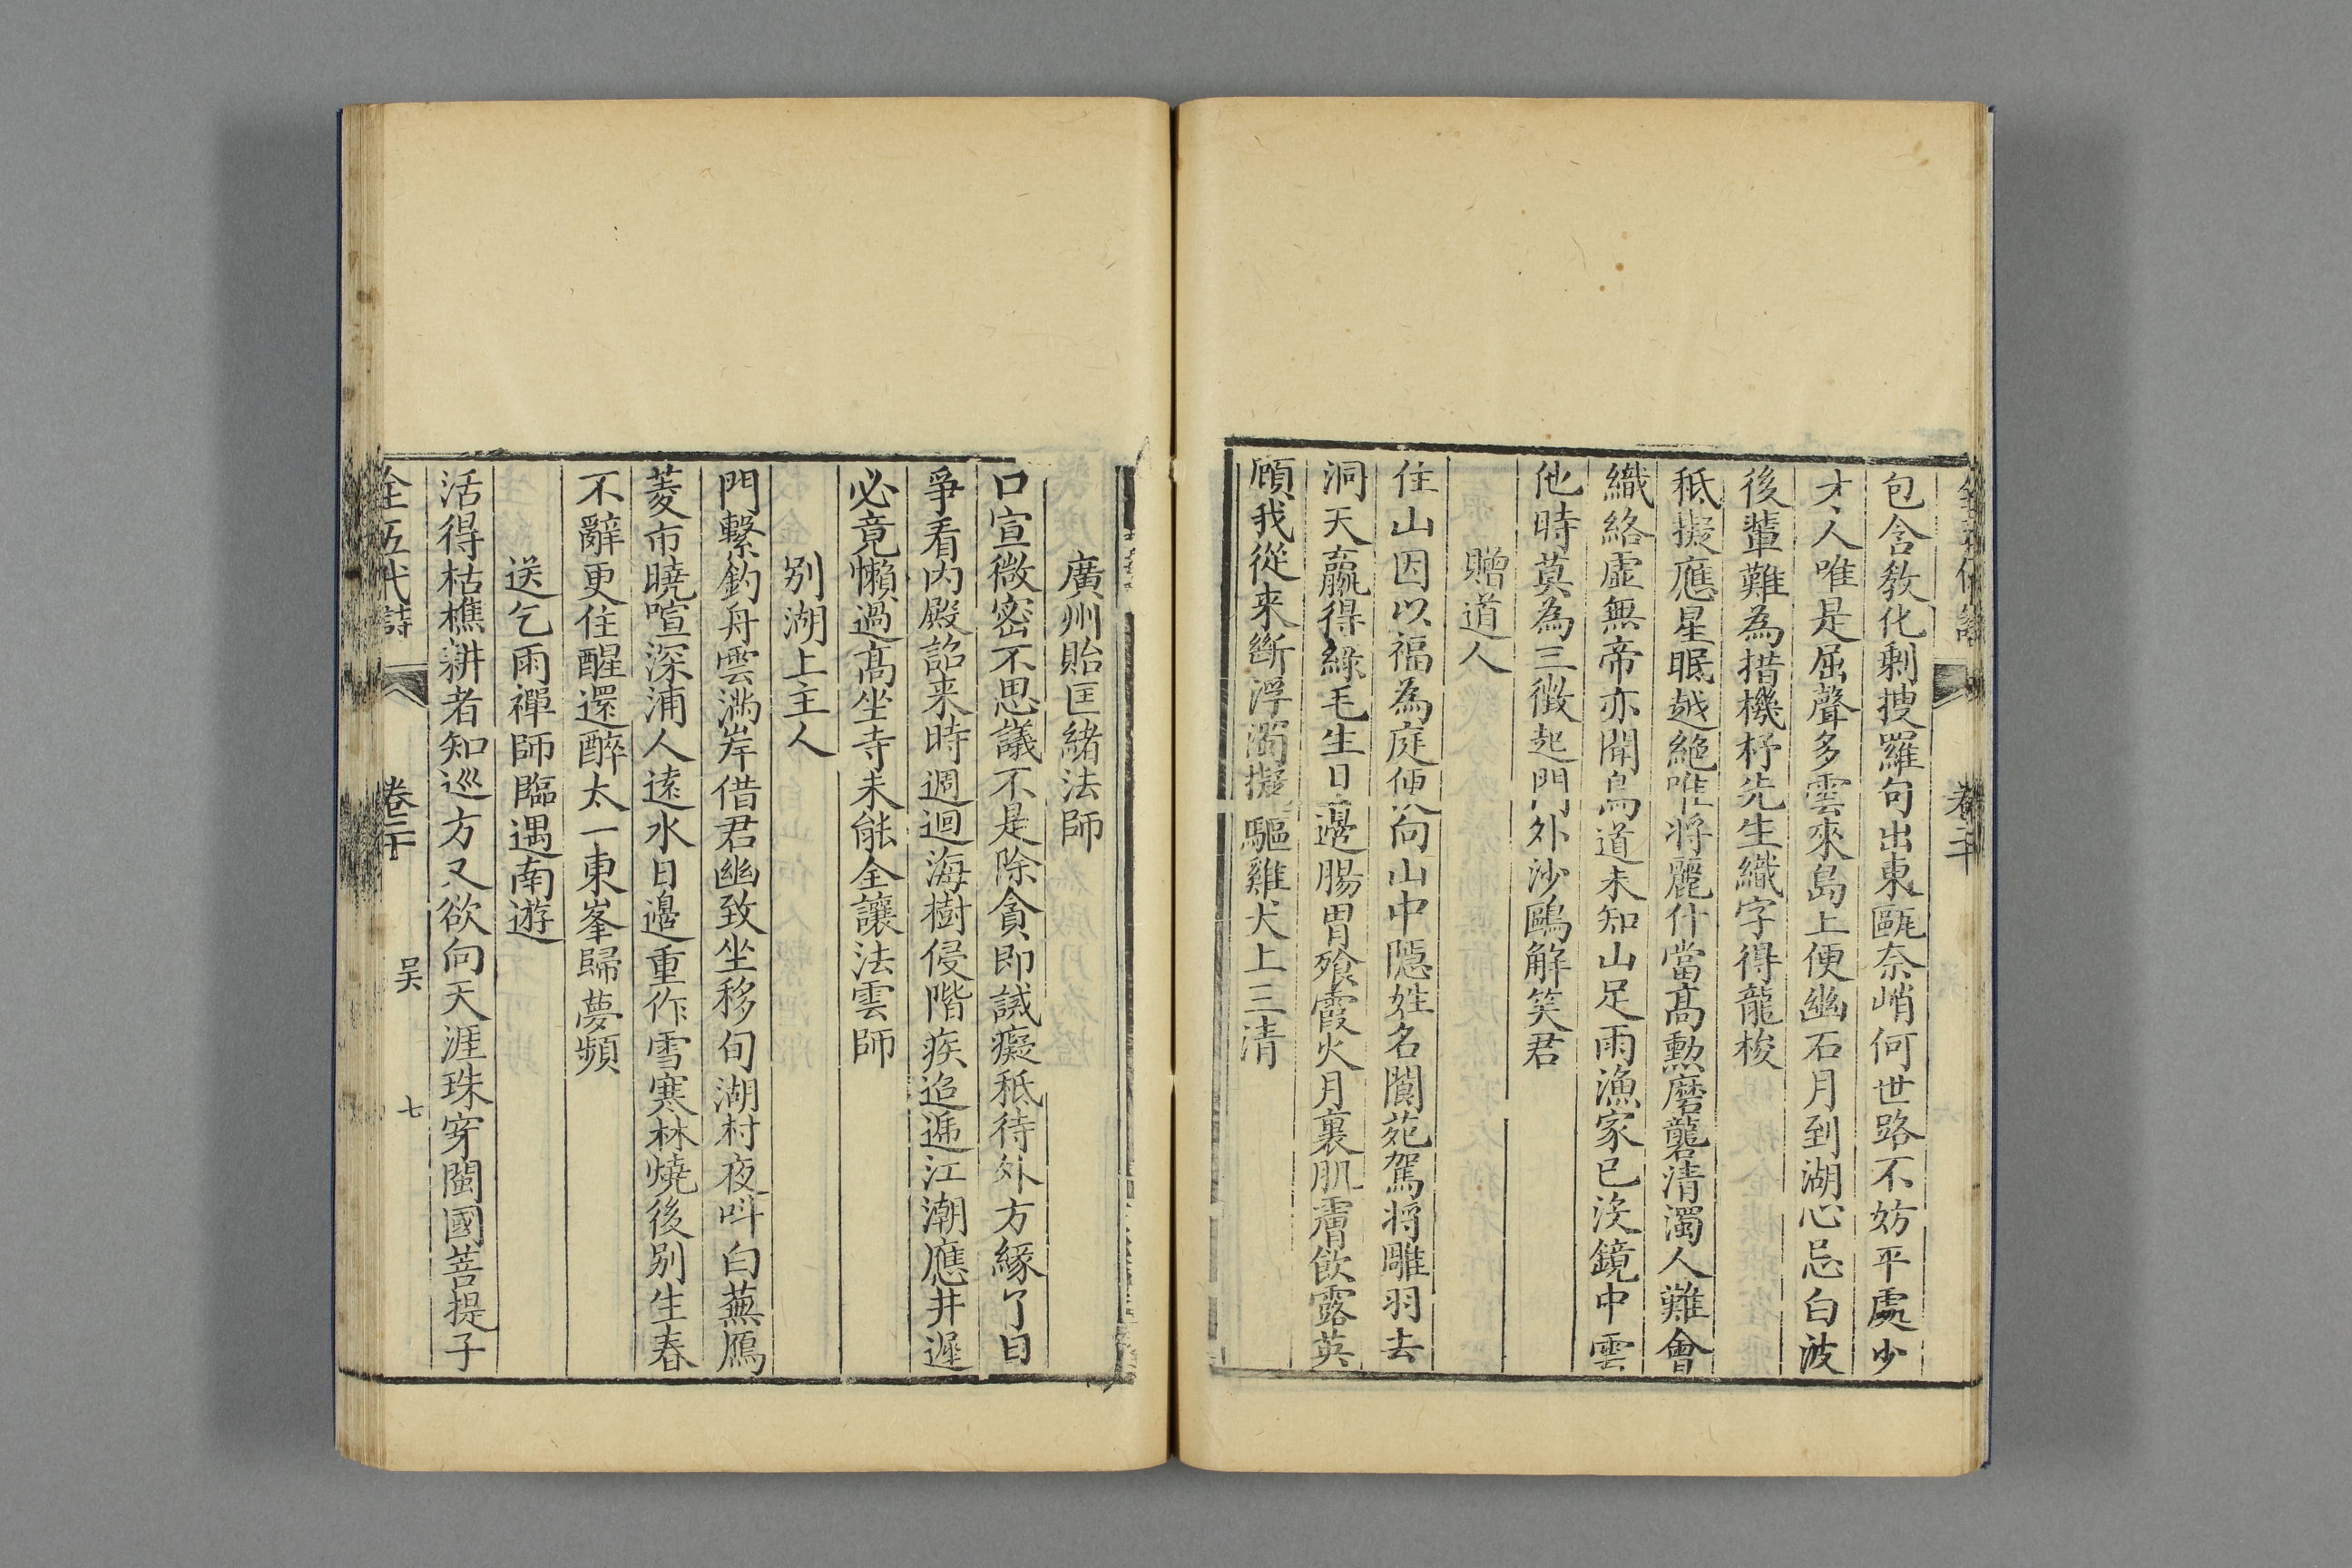 包含敎化剩搜羅句出東甌奈峭何世路不妨平處少
才人唯是屈聲多雲來島上便幽石月到湖心忌白波
後輩難為措機杼先生織字得龍梭
秪擬應星眠越絶唯將麗什當髙勲磨礲清濁人難會
織絡虛無帝亦聞鳥道未知山足雨漁家已沒鏡中雲
他時莫為三徵起門外沙鷗解笑君
贈道人
住山因以福為庭便向山中隱姓名閬苑駕將雕羽去
洞天赢得綠毛生日邊腸胃飱霞火月裏肌膚飲露英
顧我從來斷浮濁擬驅雞犬上三清
卷二十
廣州貽匡緒法師
口宣微密不思議不是除貪即誡癡秪待外方緣了日
爭看内殿詔来時週迴海樹侵階疾迢遞江潮應井遲
必竟懶過髙坐寺未能全讓法雲師
别湖上主人
門繫釣舟雲滿岸借君幽致坐移旬湖村夜呌白蕪鴈
菱市曉喧深浦人遠水日邊重作雪寒林燒後别生春
不辭更住醒還醉太一東峯歸夢頻
送乞雨禪師臨遇南遊
活得枯樵耕者知巡方又欲向天涯珠穿閩國菩提子
全五代詩 卷二十 吴 七